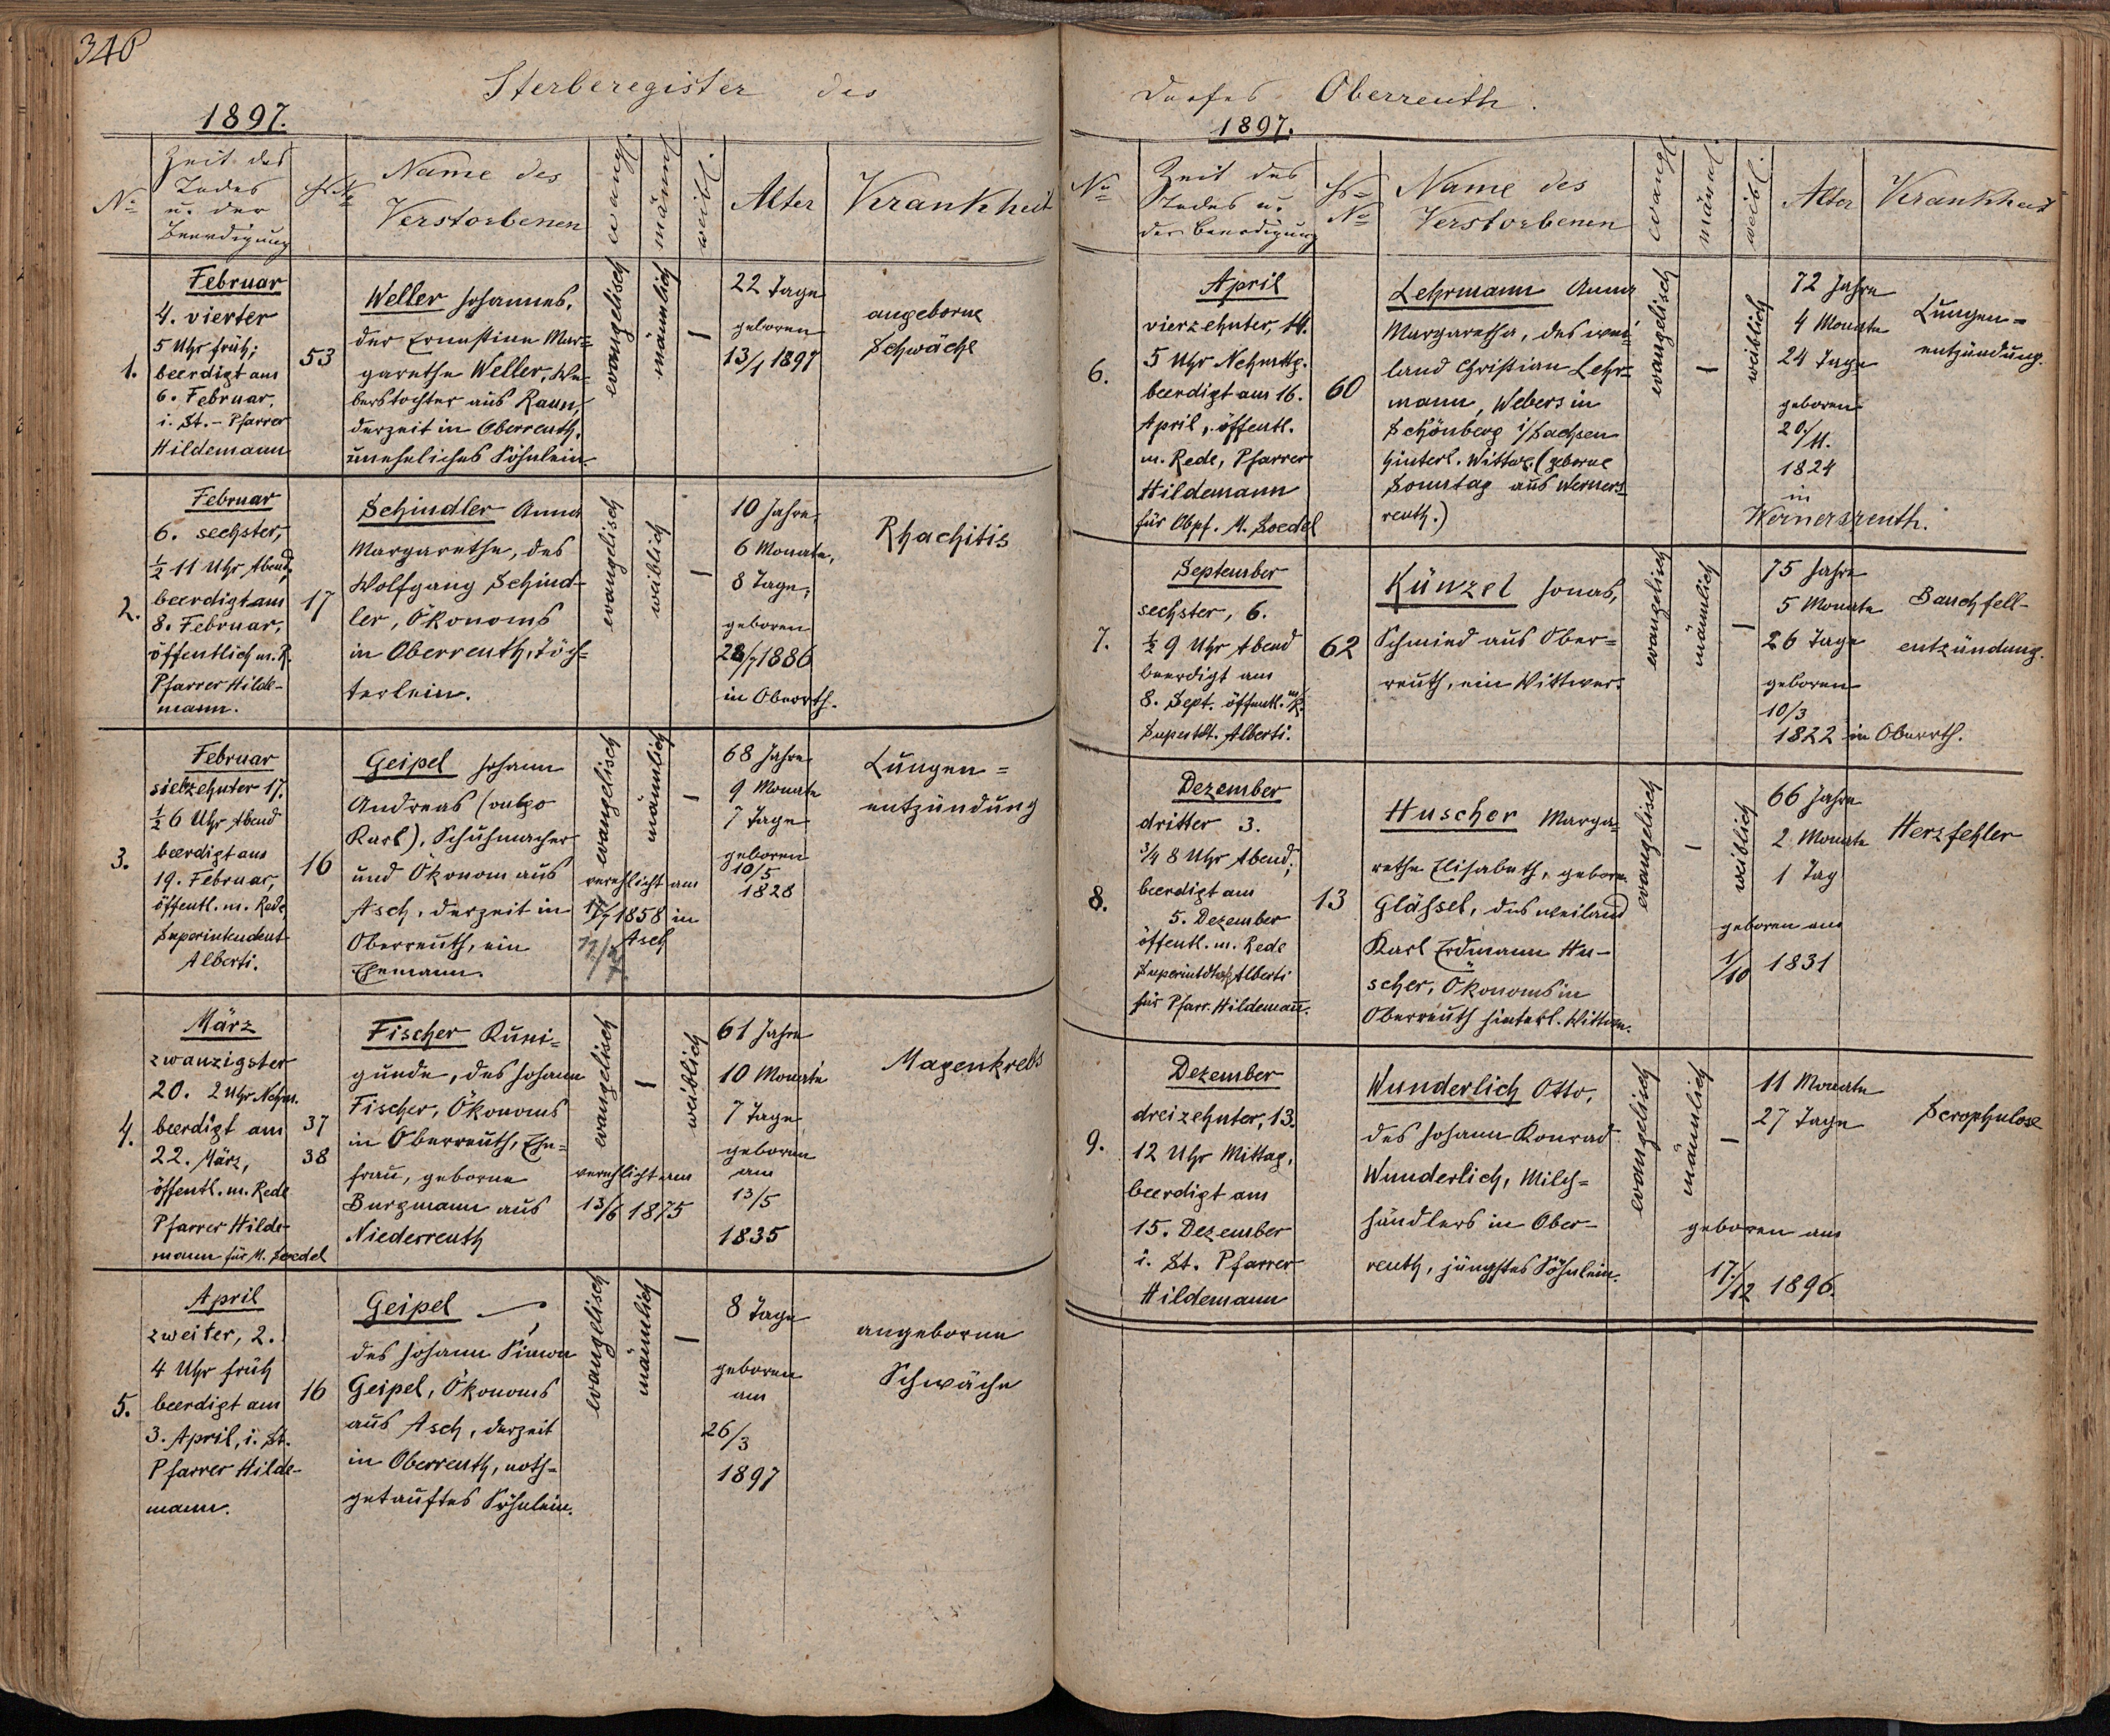 340
Sterberegister des
1897.
No
Zeit des
Todes
u. der
Beerdigung
Hs No
Name des
Verstorbenen
evangl.
männl.
weibl.
Alter
Krankheit
1.
Februar
4. vierter
5 Uhr früh;
beerdigt am
6. Februar,
i. St. - Pfarrer
Hildemann
53
Weller Johannes,
der Ernestine Mar=
garethe Weller, We=
berstochter aus Raun,
derzeit in Oberreuth,
uneheliches Söhnlein.
evangelisch
männlich
22 Tage
geboren
13/1 1897
angeborne
Schwäche
2.
Februar
6. sechster,
1/2 11 Uhr Abend,
beerdigt am
8. Februar,
öffentlich m. R.
Pfarrer Hilde-
mann.
17
Schindler Anna
Margarethe, des
Wolfgang Schind-
ler, Ökonoms
in Oberreuth, Töch=
terlein.
evangelisch
weiblich
10 Jahre,
6 Monate,
8 Tage,
geboren
28/7 1886
in Oberrth.
Rhachitis
3.
Februar
siebzehnter 17.
1/2 6 Uhr Abend
beerdigt am
19. Februar,
öffentl. m. Rede
Superintendent
Alberti.
16
Geipel Johann
Andreas (vulgo
Karl), Schuhmacher
und Ökonom aus
Asch, derzeit in
Oberreuth, ein
Ehemann.
evangelisch
männlich
verehlicht am
1858 in
Asch
68 Jahre
9 Monate
7 Tage
geboren
10/5
1828
Lungen=
entzündung
4.
März
zwanzigster
20. 2 Uhr Nchm.
beerdigt am
22. März,
öffentl. m. Rede
Pfarrer Hilde-
mann für M. Soedel
37
38
Fischer Kuni=
gunde, des Johann
Fischer, Ökonoms
in Oberreuth, Ehe=
frau, geborne
Burgmann aus
Niederreuth
evangelisch
weiblich
verehlicht am
13/6 1875
61 Jahre
10 Monate
7 Tage
geboren
am
13/5
1835
Magenkrebs
5.
April
zweiter, 2.
4 Uhr früh
beerdigt am
3. April, i. St.
Pfarrer Hilde-
mann.
16
Geipel
des Johann Simon
Geipel, Ökonoms
aus Asch, derzeit
in Oberreuth, noth=
getauftes Söhnlein.
evangelisch
männlich
8 Tage
geboren
am
26/3
1897
angeborne
Schwäche
Dorfes Oberreuth.
1897.
No
Zeit des
Todes u.
der Beerdigung
Hs=
No
Name des
Verstorbenen
evangl.
männl.
weibl.
Alter
Krankheit
6.
April
vierzehnter, 14.
5 Uhr Nchmttg.
beerdigt am 16.
April, öffentl.
m. Rede, Pfarrer
Hildemann
für Obpf. M. Soedel
60
Lehrmann Anna
Margaretha, des wei=
land Christian Lehr=
mann, Webers in
Schönberg i/Sachsen
hinterl. Wittwe (geborne
Sonntag aus Werners=
reuth.)
evangelisch
weiblich
72 Jahre
4 Monate
24 Tage
geboren
20/11.
1824
in
Wernersreuth.
Lungen=
entzündung.
7.
September
sechster, 6.
1/2 9 Uhr Abend
beerdigt am
8. Sept. öffentl. m. R.
Suptdt. Alberti.
62
Künzel Jonas,
Schmied aus Ober=
reuth, ein Wittwer.
evangelisch
männlich
75 Jahre
5 Monate
26 Tage
geboren
10/3
1822 in Oberrth.
Bauchfell-
entzündung.
8.
Dezember
dritter 3.
3/4 8 Uhr Abend;
beerdigt am
5. Dezember
öffentl. m. Rede
Alberti
für Pfarr. Hildemann.
13
Huscher Marga=
rethe Elisabeth, geborn.
Gläßel, des weiland
Karl Erdmann Hu-
scher, Ökonoms in
Oberreuth hinterl. Wittwe.
evangelisch
weiblich
66 Jahre
2 Monate
1 Tag
geboren am
1/10 1831
Herzfehler
9.
Dezember
dreizehnter, 13.
12 Uhr Mittag,
beerdigt am
15. Dezember
i. St. Pfarrer
Hildemann
Wunderlich Otto,
des Johann Konrad
Wunderlich, Milch=
händlers in Ober-
reuth, jüngstes Söhnlein.
evangelisch
männlich
11 Monate
27 Tage
geboren am
17./12 1896.
Scrophulose